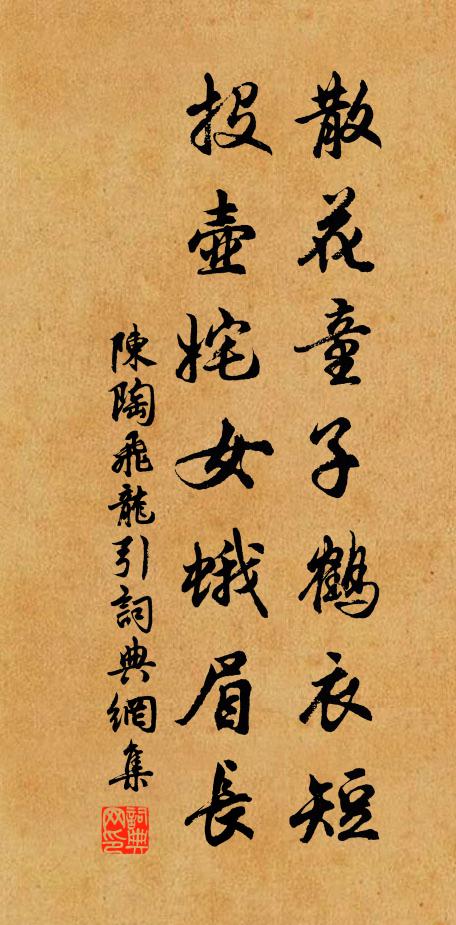 散花童子鶴衣短
投壺姹女蛾眉長
陳陶飛龍引詞典網集
詞典
网印